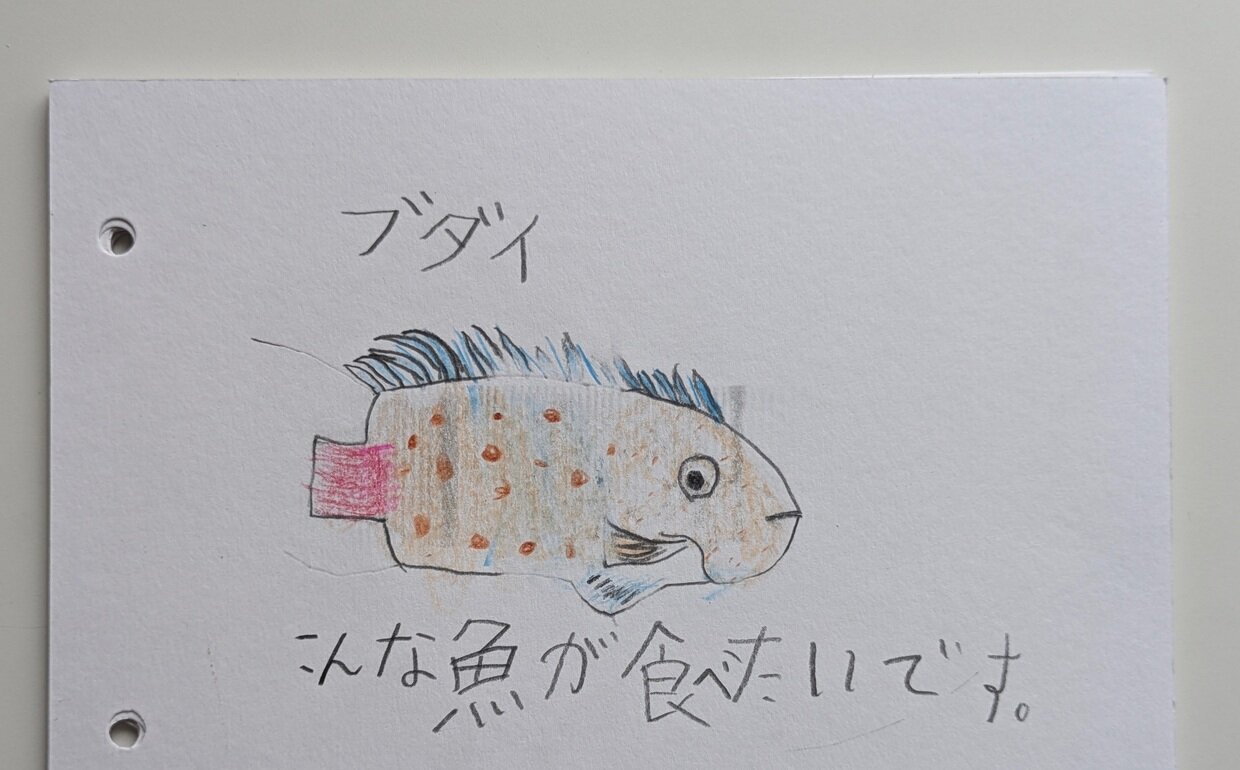 ブダイ
こんな魚が食べたいです。